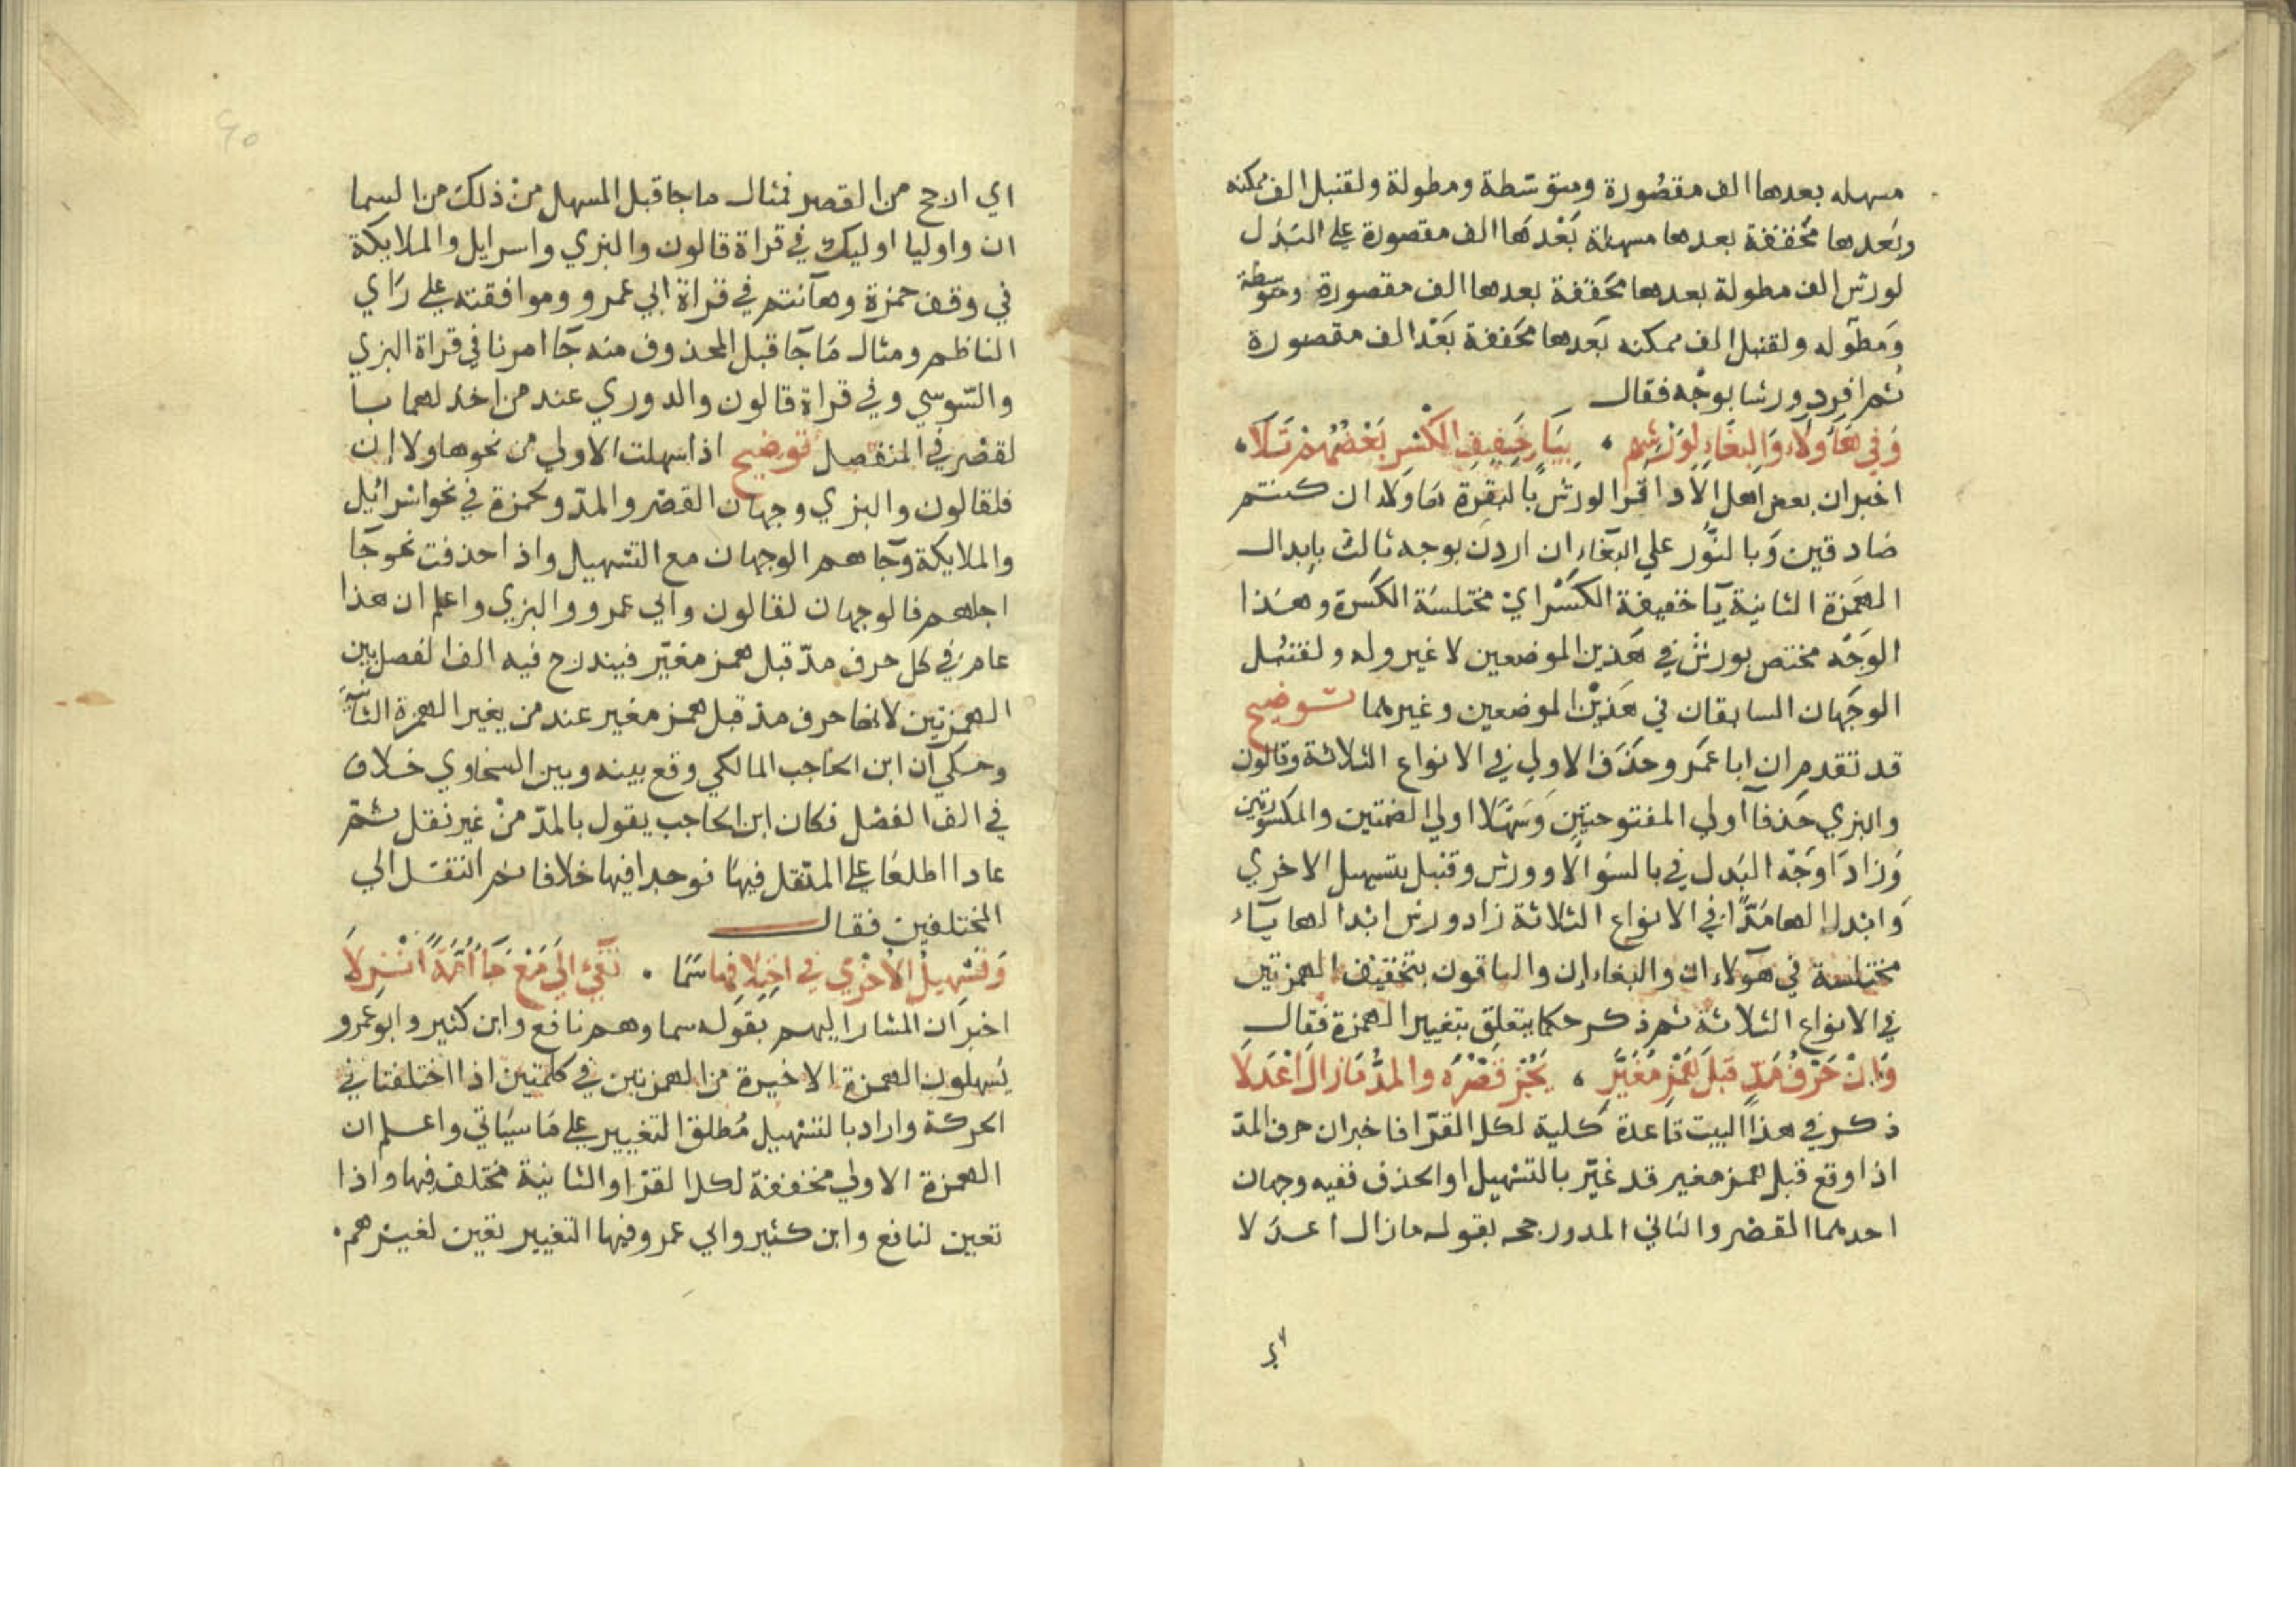 مسهله بعدها الف مقصورة ومتوسطة ومطولة ولقنبل الف ممكنه
وبعدها مخففة بعدها مسهلة بَعْدهَا الف مقصورة علي البدل
لورش الف مطولة بعدها مخففة بعدها الف مقصورة ومتوسطة
وَمطوله ولقنبل الف ممكنه بَعدها مخففة بَعْد الف مقصورة
ثم افرد ورشا بوجْه فقال
وَفِي هَآؤلَاء وَالبِغَاءِ لِوَرْشِهِم ، بِيَاءِ خَفِيفِ الكَسْرِ بَعْضُهُمْ تَلَا ،
اخبر ان بعض اهل الادا قرا لورش بالبقرة هاولاء ان كنتم
صادقين وَبالنُّور علي البَغاء ان اردن بوجه ثالث بابدال
الهَمزة الثانية يآ خفيفة الكَسْر ايْ مختلسَة الكسَرة وهَذا
الوَجْه مختص بورش في هَذين الموضعين لا غير وله ولقنبل
الوجَهان السابقان في هَذيْن الموضعين وغيرهما توضيح
قد تقدم ان ابا عَمرو حذَف الاولي في الانواع الثلاثة وقالون
والبزي حَذفا اولي المفتوحتين وَسَهّلا اولي الضمتين والمكسورتين
وَزادَا وَجْه البَدل في بالسوء الّا وورش وقنبل بتسهيل الاخري
وَابْدلا لها مَدًّا في الانواع الثلاثة زاد ورش ابدالها يآء
مختلسة في هَؤلاء ان والبغاء ان والباقون بتخفيف الهمزتين
في الانواع الثلاثة ثم ذكر حكما يتعلق بتغيير الهمزة فقال
وَاِنْ حَرْفُ مَدٍّ قَبلَ هَمْزٍ مُغَيَّرٍ ، يَجُزْ قَصْرُه والمدُّ مَا زالَ اعْدَلَا
ذكر في هذا البيت قاعدة كلية لكل القرّا فاخبر ان حرف المدّ
اذا وقع قبل همز مغير قد غيّر بالتسْهيل او الحذف ففيه وجهان
احدهما القصْر والثاني المد ورجحه بقوله ما زال اعدَلا
اي ارجح من القصر فمثال ما جا قبل المسهل منْ ذلك من السما
ان واوليا اوليك في قراة قالون والبزي واسرايل والملايكة
في وقف حمزة وهآنتم في قراة ابي عمرو وموافقته علي رَاي
الناظم ومثال مَا جَا قبل المحذوف منه جَا امرنا في قراة البزي
والسّوسي وفي قراة قالون والدوري عند من اخذ لهما با
لقصْر في المنفصل توضيح اذا سهلت الاولي من نحو هاولا ان
فلقالون والبزي وجهان القصْر والمدّ ولحمزة في نحو اسْرائيل
والملايكة وجَاهم الوجهان مع التسْهيل واذا حذفت نحو جَا
اجلهم فالوجهان لقالون وابي عمرو والبزي واعلم ان هذا
عام في كل حرف مدّ قبل همز مغيّر فيندرج فيه الف الفصل بين
الهمزتين لانها حرف مد قبل همز مغير عند من يغير الهمزة الثانية
وحكي ان ابن الحاجب المالكي وقع بينه وبين السخاوي خلاف
في الف الفصْل فكان ابن الحاجب يقول بالمدّ منْ غير نقل ثمّ
عادا اطلعَا علي النقل فيهَا فوجدا فيها خلافا ثم انتقل الي
المختلفين فقال
وَتَسْهِيلُ الأُخْرَي فِي اخْتِلَافِهِما سَمَا . تَفِئَ اِلَي مَعْ جَا أُمَّةً اُنْزِلَا
اخبر ان المشار اليهم بقوله سما وهم نافع وابن كثير وابو عَمرو
يُسَهلون الهمزة الاخيرة من الهمزتين في كلمتين اذا اختلفتا في
الحركة واراد بالتسْهيل مُطلق التغيير علي مَا سَيَاتي واعلم ان
الهمزة الاولي مخففة لكل القرّا والثانية مختلف فيها واذا
تعين لنافع وابن كثير وابي عمرو فيها التغيير تعين لغيرهم.